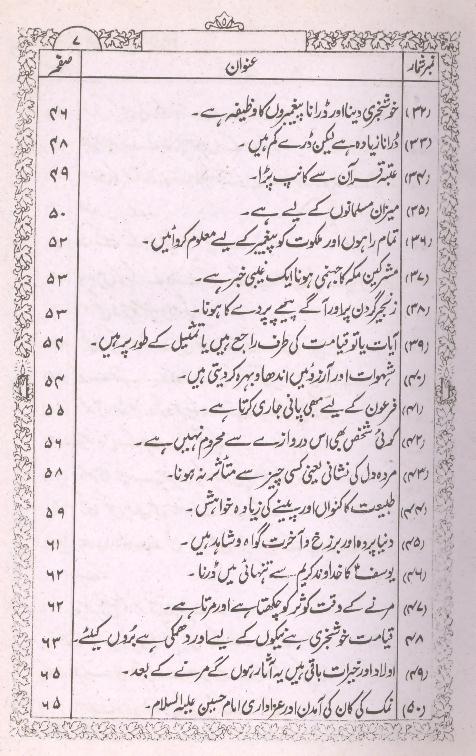 ۷
نمبر شمار عنوان صفحہ
(۳۲) خوشخبری دینا اور ڈرانا پیغمبروں کا وظیفہ ہے۔ ۴۶
(۳۳) ڈرانا زیادہ ہے لیکن ڈرے کم ہیں۔ ۴۸
(۳۴) عتبہ قرآن سے کانپ پڑا۔ ۴۹
(۳۵) میزان مسلمانوں کے لیے ہے۔ ۵۰
(۳۶) تمام راہوں اور ملکوت کو پیغمبر کے لیے معلوم کروائیں۔ ۵۲
(۳۷) مشرکین مکہ کا جہنمی ہونا ایک غیبی خبر ہے۔ ۵۳
(۳۸) زنجیر گردن پر اور آگے پیچھے پردے کا ہونا۔ ۵۳
(۳۹) آیات یا تو قیامت کی طرف راجع ہیں یا تمثیل کے طور پہ ہیں۔ ۵۴
(۴۰) شہوات اور آرزوئیں اندھا و بہرہ کر دیتی ہیں۔ ۵۴
(۴۱) فرعون کے لیے بھی پانی جاری کرتا ہے۔ ۵۵
(۴۲) کوئی شخص بھی اس دروازے سے محروم نہیں ہے۔ ۵۶
(۴۳) مردہ دل کی نشانی یعنی کسی چیز سے متأثر نہ ہونا۔ ۵۸
(۴۴) طبیعت کا کنواں اور پینے کی زیادہ خواہش۔ ۵۹
(۴۵) دنیا پردہ اور برزخ و آخرت گواہ و شاہد ہیں۔ ۶۱
(۴۶) یوسفؑ کا خداوند کریم سے تنہائی میں ڈرنا۔ ۶۲
(۴۷) مرنے کے وقت کوثر کو چکھتا ہے اور مرتا ہے۔ ۶۲
۴۸ قیامت خوشخبری ہے نیکوں کے لیے اور دھمکی ہے بروں کیلئے۔ ۶۳
(۴۹) اولاد اور خیرات باقی ہیں یہ آثار ہوں گے مرنے کے بعد۔ ۶۵
(۵۰) نمک کی کان کی آمدن اور عزاداری امام حسین علیہ السلام۔ ۶۵